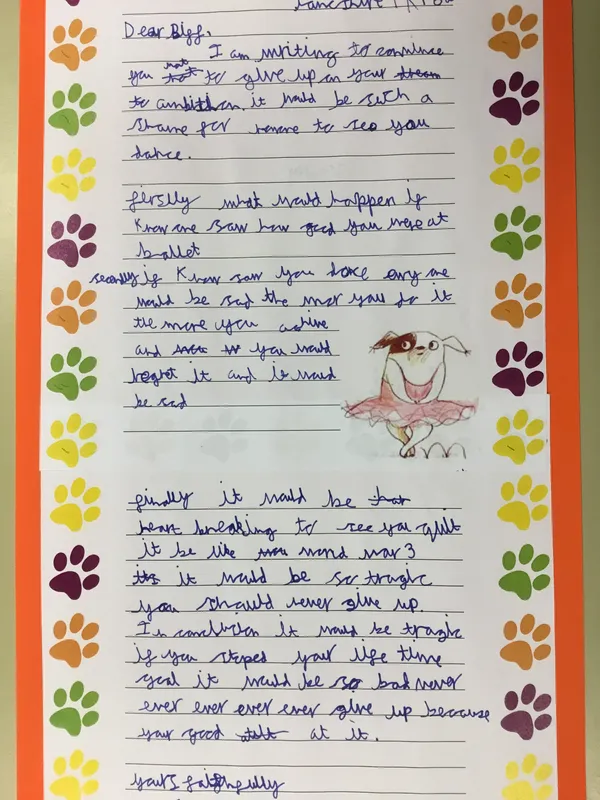 Dear Biff,
I am writing to convince
you not to give up on your dream
to ambition. it would be such a
shame for to see you
dance.
firstly what would happen if
know one saw how good you were at
ballet
secondly if know saw you dance evry one
would be sad the mor you do it
the more you achive
and you would
regret it and it would
be sad
finally it would be
heart breaking to see you quit
it be like word war 3
it would be so tragic
you should never give up.
In conclusion it would be tragic
if you stoped your life time
goal it would be so bad never
ever ever ever ever give up because
your good at it.
yours faithfully